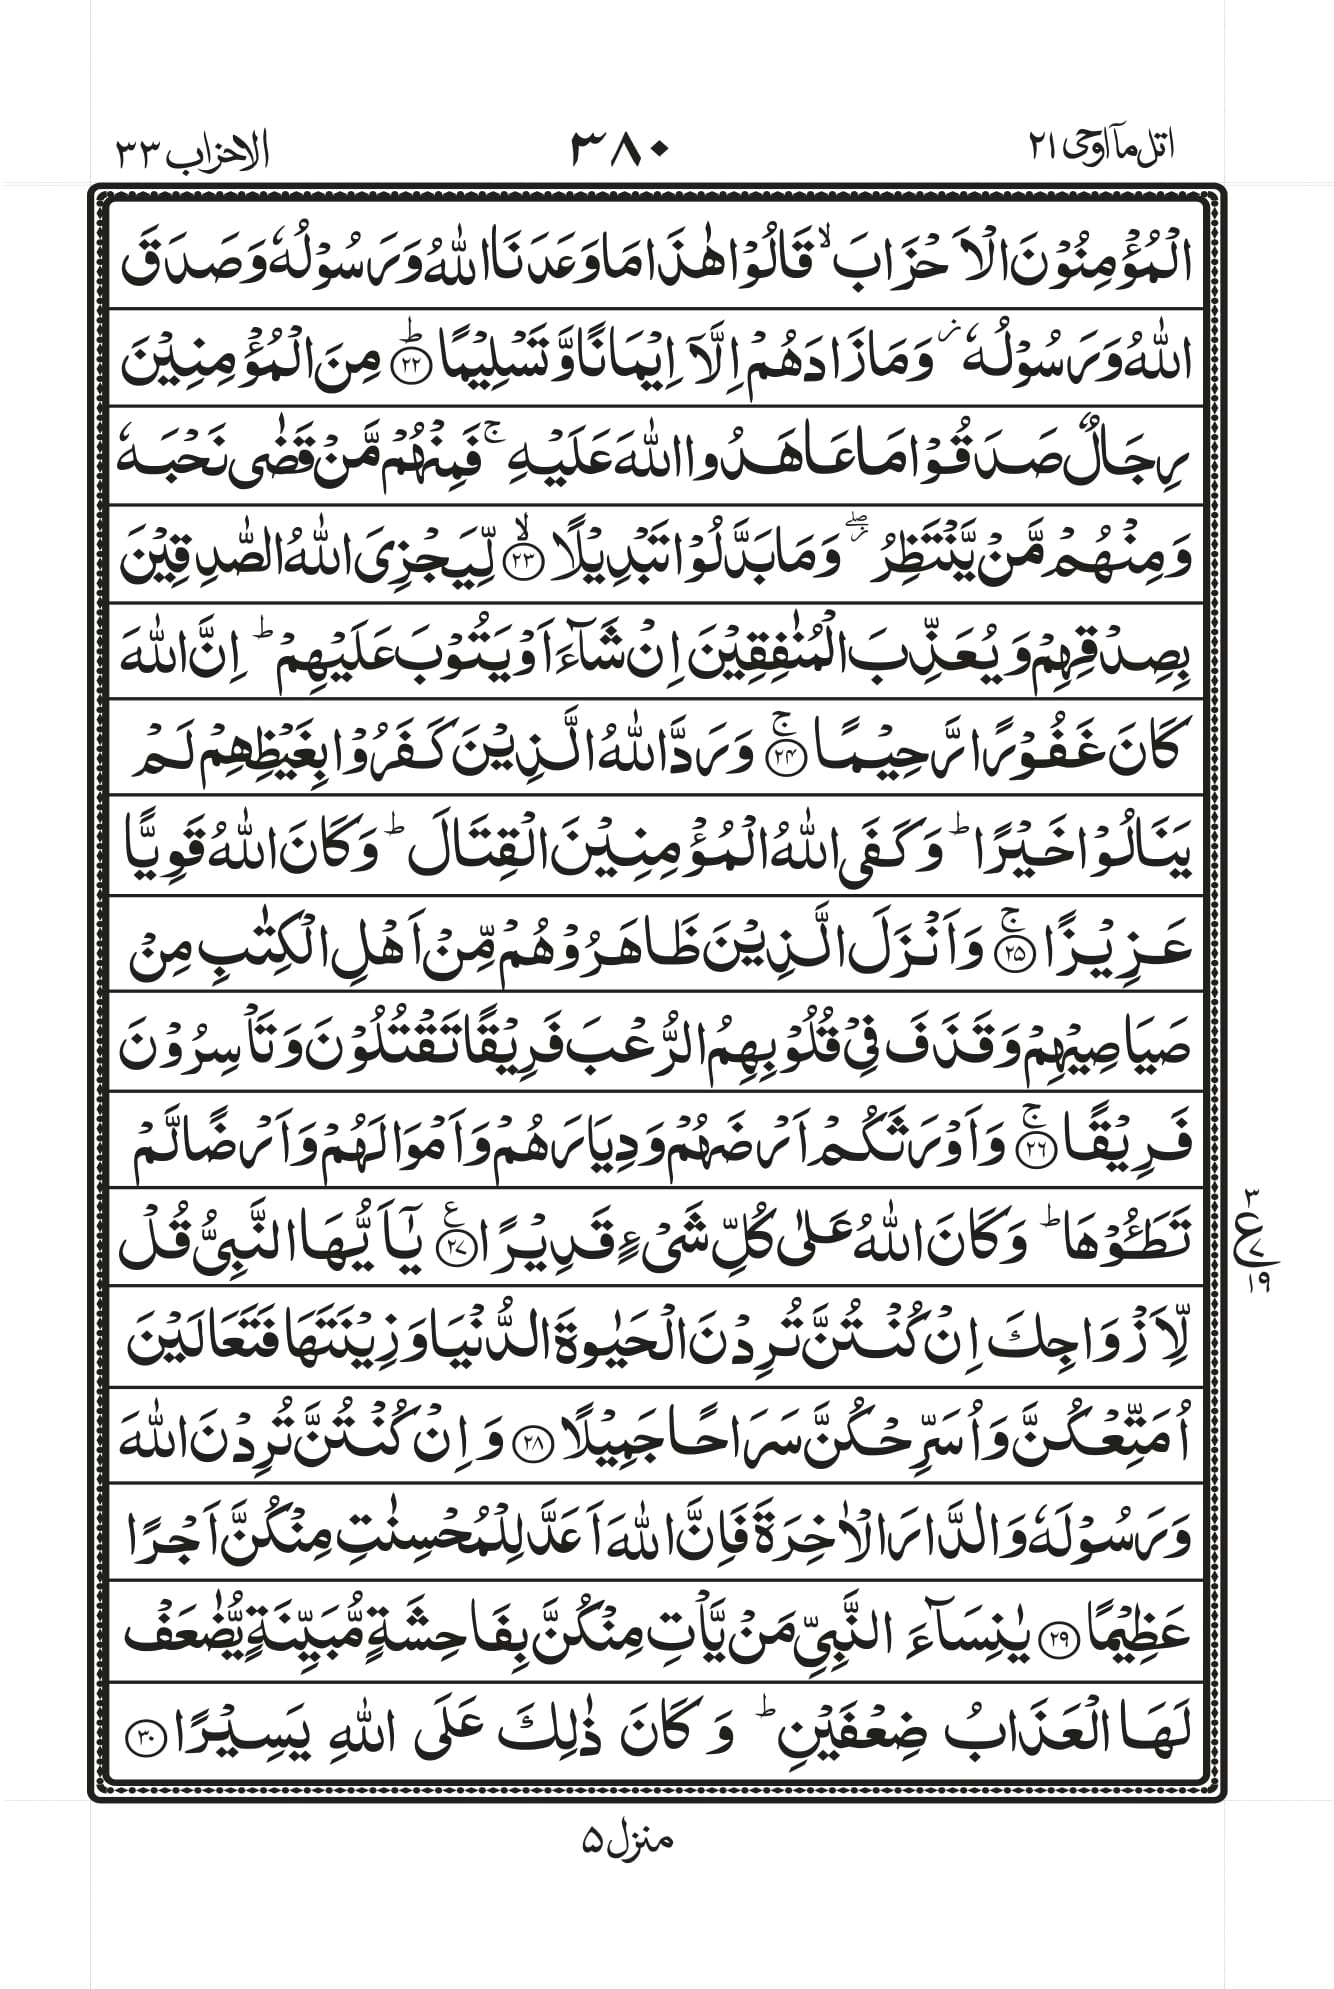 اتل مآ اوحی ۲۱
۳۸۰
الاحزاب ۳۳
الْمُؤْمِنُوْنَ الْاَحْزَابَ ۙ قَالُوْا هٰذَا مَا وَعَدَنَا اللّٰهُ وَرَسُوْلُهٗ وَصَدَقَ
اللّٰهُ وَرَسُوْلُهٗ ؗ وَمَا زَادَهُمْ اِلَّآ اِيْمَانًا وَّتَسْلِيْمًا ؕ ﴿۲۲﴾ مِنَ الْمُؤْمِنِيْنَ
رِجَالٌ صَدَقُوْا مَا عَاهَدُوا اللّٰهَ عَلَيْهِ ۚ فَمِنْهُمْ مَّنْ قَضٰى نَحْبَهٗ
وَمِنْهُمْ مَّنْ يَّنْتَظِرُ ۖؗ وَمَا بَدَّلُوْا تَبْدِيْلًا ۙ ﴿۲۳﴾ لِّيَجْزِىَ اللّٰهُ الصّٰدِقِيْنَ
بِصِدْقِهِمْ وَيُعَذِّبَ الْمُنٰفِقِيْنَ اِنْ شَآءَ اَوْ يَتُوْبَ عَلَيْهِمْ ؕ اِنَّ اللّٰهَ
كَانَ غَفُوْرًا رَّحِيْمًا ۚ ﴿۲۴﴾ وَرَدَّ اللّٰهُ الَّذِيْنَ كَفَرُوْا بِغَيْظِهِمْ لَمْ
يَنَالُوْا خَيْرًا ؕ وَكَفَى اللّٰهُ الْمُؤْمِنِيْنَ الْقِتَالَ ؕ وَكَانَ اللّٰهُ قَوِيًّا
عَزِيْزًا ۚ ﴿۲۵﴾ وَاَنْزَلَ الَّذِيْنَ ظَاهَرُوْهُمْ مِّنْ اَهْلِ الْكِتٰبِ مِنْ
صَيَاصِيْهِمْ وَقَذَفَ فِيْ قُلُوْبِهِمُ الرُّعْبَ فَرِيْقًا تَقْتُلُوْنَ وَتَاْسِرُوْنَ
فَرِيْقًا ۚ ﴿۲۶﴾ وَاَوْرَثَكُمْ اَرْضَهُمْ وَدِيَارَهُمْ وَاَمْوَالَهُمْ وَاَرْضًا لَّمْ
تَطَـُٔوْهَا ؕ وَكَانَ اللّٰهُ عَلٰى كُلِّ شَىْءٍ قَدِيْرًا ۧ ﴿۲۷﴾ يٰٓاَيُّهَا النَّبِىُّ قُلْ
۳
ع
۷
۱۹
لِّاَزْوَاجِكَ اِنْ كُنْتُنَّ تُرِدْنَ الْحَيٰوةَ الدُّنْيَا وَزِيْنَتَهَا فَتَعَالَيْنَ
اُمَتِّعْكُنَّ وَاُسَرِّحْكُنَّ سَرَاحًا جَمِيْلًا ﴿۲۸﴾ وَاِنْ كُنْتُنَّ تُرِدْنَ اللّٰهَ
وَرَسُوْلَهٗ وَالدَّارَ الْاٰخِرَةَ فَاِنَّ اللّٰهَ اَعَدَّ لِلْمُحْسِنٰتِ مِنْكُنَّ اَجْرًا
عَظِيْمًا ﴿۲۹﴾ يٰنِسَآءَ النَّبِىِّ مَنْ يَّاْتِ مِنْكُنَّ بِفَاحِشَةٍ مُّبَيِّنَةٍ يُّضٰعَفْ
لَهَا الْعَذَابُ ضِعْفَيْنِ ؕ وَكَانَ ذٰلِكَ عَلَى اللّٰهِ يَسِيْرًا ﴿۳۰﴾
منزل ۵